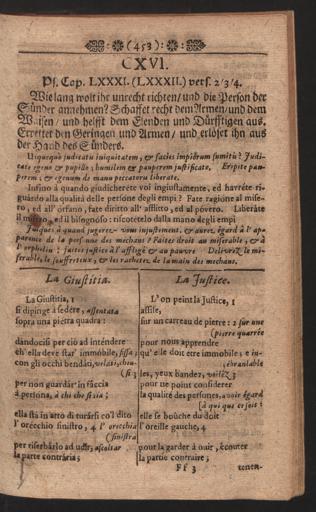 (453)
CXVI.
Ps. Cap. LXXXI. (LXXXII.) vers. 2/3/4.
Wie lang wolt ihr unrecht richten/ und die Person der
Sünder annehmen? Schaffet recht dem Armen/ und dem
Waisen/ und helfft dem Elenden und Dürfftigen aus.
Errettet den Geringen und Armen/ und erlöset ihn aus
der Hand des Sünders.
Usquequò judicatis iniquitatem, & facies impiorum sumitis? Judi-
cate egeno & pupillo; humilem & pauperem justificate. Eripite pau-
perem; & egenum de manu peccatoris liberate.
Infino à quando giudicherete voi ingiustamente, ed havréte ri-
guàrdo alla qualità delle persone degli empi? Fate ragione al mise-
ro, ed all' òrfano, fate diritto all' afflitto, ed al póvero. Liberàte
il misero, ed il bisognoso: riscotetelo dalla mano degli empi
Jusques à quand jugerez-vous injustement, & aurez égard à l' ap-
parence de la personne des mechans? Faites droit au miserable, & à
l' orphelin: faites justice à l' affligé & au pauvre. Delivrez le mi-
serable, le souffreteux, & les rachetez de la main des mechans.
La Giustitia.
La Giustitia, 1
si dipinge à sedére, assentata
sopra una piétra quadra:
dandocisi per ciò ad inténdere
ch' ella deve star' immóbile, fissa;
con gli occhi bendàti, velati, chiu-
(si 3
per non guardàr in fàccia
à persóna, à chi che si sia;
ella stà in atto di turàrsi co'l dito
l' orécchio sinistro, 4 l' orecchia
(sinistra
per riserbàrlo ad udìr, ascoltar
la parte contrària;
La Justice.
L' on peint la Justice, 1
assise,
sur un carreau de pierre: 2 sur une
(pierre quarrée
pour nous apprendre
qu' elle doit etre immobile; e in-
(ébranlable
les, yeux bandez, voilez 3
pour ne point considerer
la qualité des persones, avoir égard
(à qui que ce soit:
elle se bouche du doit
l' oreille gauche, 4
pour la garder à ouïr, écouter
la partie contraire;
Ff 3
tenen-